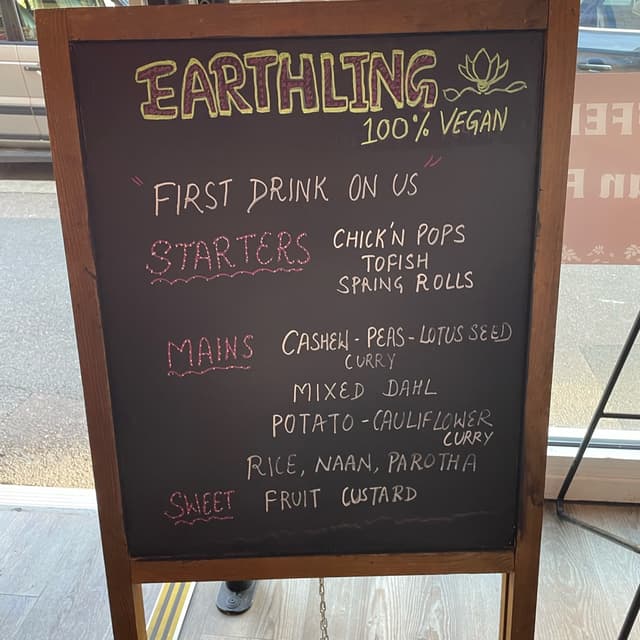 EARTHLING
100% VEGAN
"FIRST DRINK ON US"
STARTERS CHICK'N POPS
TOFISH
SPRING ROLLS
MAINS CASHEW - PEAS - LOTUS SEED
CURRY
MIXED DAHL
POTATO - CAULIFLOWER
CURRY
RICE, NAAN, PAROTHA
SWEET FRUIT CUSTARD